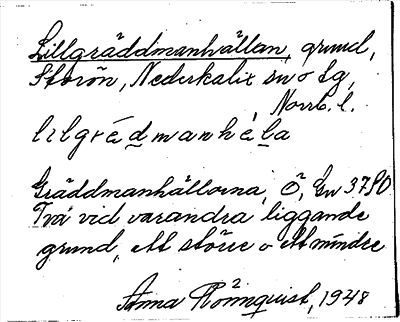 Lillgräddmanhällan, grund,
Storön, Nederkalix sn o tg,
Norrb. l.
lilgrédmanhéla
Gräddmanhällorna, Ö, Gv 3790
Två vid varandra liggande
grund, ett större o ett mindre
Anna Rönnquist, 1948